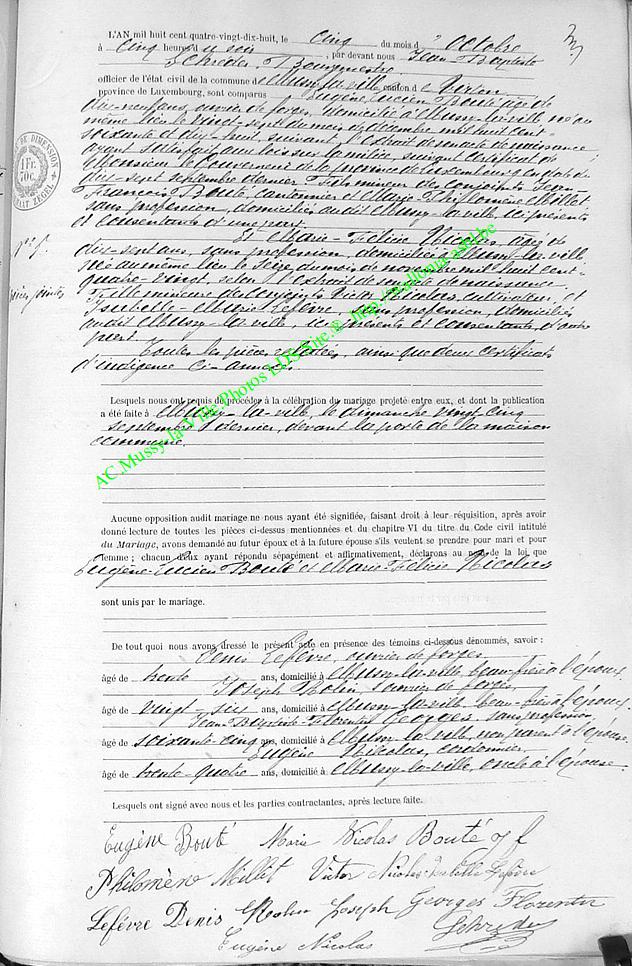 L'AN mil huit cent quatre-vingt-dix-huit, le cinq du mois d'octobre
à cinq heures du soir, par devant nous Jean Baptiste
Schréder, Bourgmestre
officier de l'état civil de la commune de Mussy-la-ville canton de Virton
province de Luxembourg, sont comparus Eugène Lucien Bouté âgé de
dix-neuf ans, ouvrier de forges, domicilié à Mussy-la-ville né au
même lieu le vingt-sept du mois de décembre mil huit cent
soixante et dix-huit, suivant l'extrait de son acte de naissance
ayant satisfait aux lois sur la milice, suivant certificat de
Monsieur le Gouverneur de la province de Luxembourg en date du
dix-sept septembre dernier. Fils mineur des conjoints Jean
François Bouté, cantonnier et Marie Philomène Millet
sans profession, domiciliés audit Mussy-la-ville ici présents
et consentants d'une part.
Et Marie-Félicie Nicolas, âgée de
dix-sept ans, sans profession, domiciliée Mussy-la-ville
née au même lieu le seize du mois de mil huit cent
quatre-vingt, selon l'extrait de naissance
Fille mineure des conjoints Victor Nicolas, et
Isabelle-Marie Lefèvre, sans profession, domiciliés
audit Mussy-la-ville, ici présents et consentants, d'autre
part.
Toutes les pièces, ainsi que deux certificats
d'indigence ci-annexés
DE DIMENSION
1 Fr. 70c.
ZEGEL
pièces jointes
AC.Mussy-la-Ville Photos LDS Site.® http://wallonia-asbl.be
Lesquels nous ont requis de procéder à la célébration du mariage projeté entre eux, et dont la publication
a été faite à Mussy-la-ville, le dimanche vingt cinq
septembre dernier, devant la porte de la maison
commune.
Aucune opposition audit mariage ne nous ayant été signifiée, faisant droit à leur réquisition, après avoir
donné lecture de toutes les pièces ci-dessus mentionnées et du chapitre VI du titre du Code civil intitulé
du Mariage, avons demandé au futur époux et à la future épouse s'ils veulent se prendre pour mari et pour
femme ; chacun d'eux ayant répondu séparément et affirmativement, déclarons au nom de la loi que
Eugène-Lucien Bouté et Marie-Félicie Nicolas
sont unis par le mariage.
De tout quoi nous avons dressé le présent acte en présence des témoins ci-dessous dénommés, savoir :
Denis Lefèvre, ouvrier de forges
âgé de trente ans, domicilié à Mussy-la-ville, beau-frère à l'époux,
Joseph, ouvrier de forges,
âgé de vingt-six ans, domicilié à Mussy-la-ville beau-frère à l'époux,
Jean-Baptiste-Florentin Georges, sans profession,
âgé de soixante-cinq ans, domicilié à Mussy-la-ville, non parent à l'épouse
Eugène Nicolas, cordonnier
âgé de trente-quatre ans, domicilié à Mussy-la-ville, oncle à l'épouse.
Lesquels ont signé avec nous et les parties contractantes, après lecture faite.
Eugène Bouté Marie Nicolas Bouté j f
Philomène Millet Victor Nicolas Isabelle Lefèvre
Lefévre Denis Joseph Georges Florentin
Eugène Nicolas Schréder